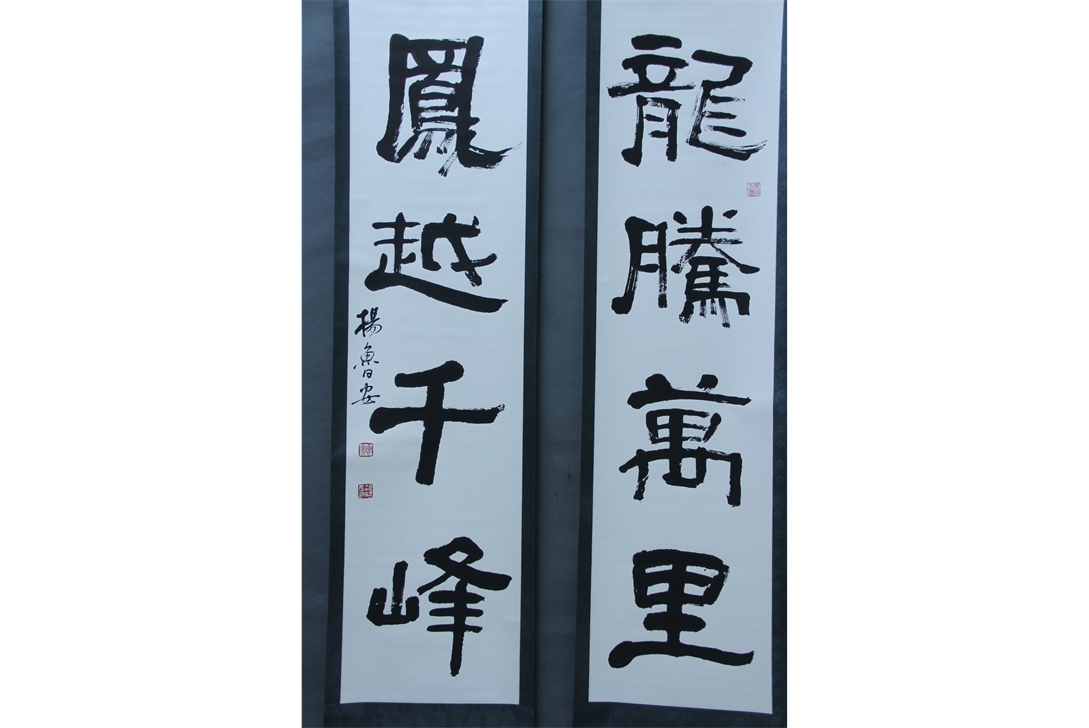 龍騰萬里
鳳越千峰
楊魯安